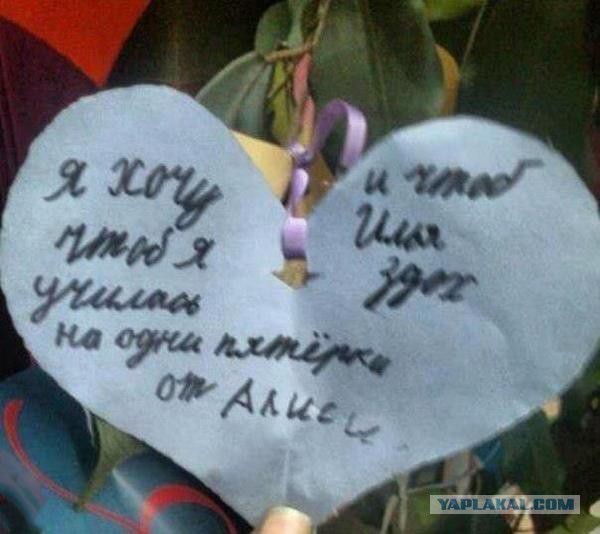 я хочу
чтоб я
училась
на одни пятёрки
от Алисы.
и чтоб
Илья
здох
YAPLAKAL.COM